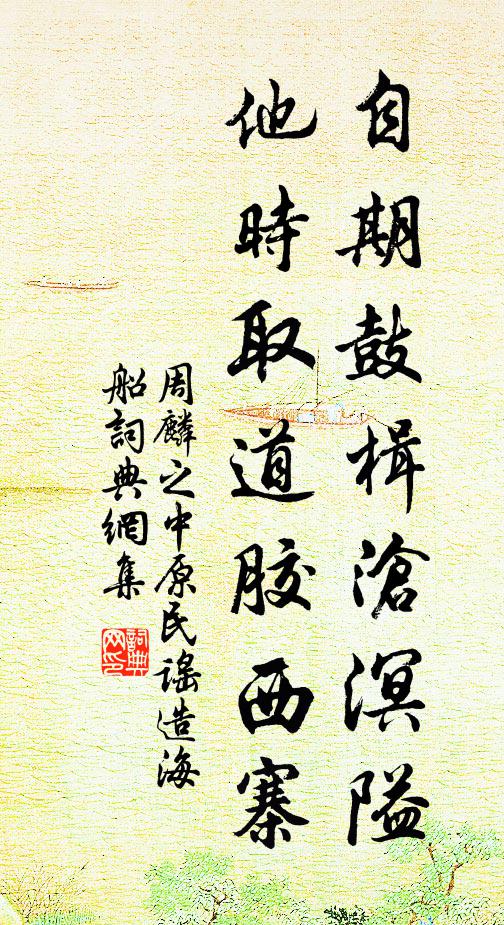 自期鼓楫滄溟隘
他時取道膠西寨
周麟之中原民謠造海
船詞典網集
詞典网印